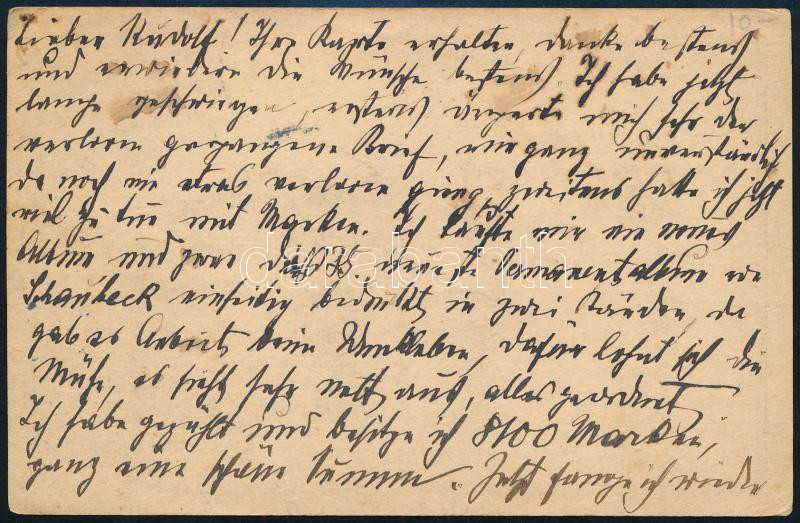 Lieber Rudolf! Ihre Karte erhalten, danke bestens
und erwiedere die Wünsche bestens. Ich habe jetzt
lange geschwiegen, erstens ärgerte mich sehr der
verloren gegangene Brief, mir ganz unverständlich
da noch nie etwas verloren ging, zweitens hatte ich jetzt
viel zu tun mit Marken. Ich kaufte mir ein neues
Album und zwar das neueste Permanentalbum von
Schaubeck einseitig bedruckt in zwei Bänden, da
gab es Arbeit beim Umkleben, dafür lohnt sich die
Mühe, es sieht sehr nett aus, alles geordnet
Ich habe gezählt und besitze ich 8100 Marken,
ganz eine schöne Summe. Jetzt fange ich wieder
10.-
darabanth